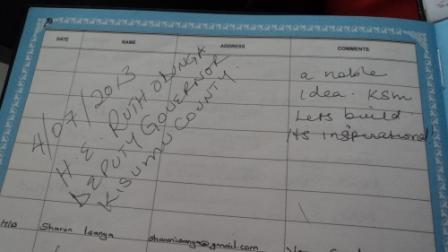 DATE NAME ADDRESS COMMENTS
4/07/2013
H.E. RUTH ODINGA
DEPUTY GOVERNOR
KISUMU COUNTY.
a noble
idea. KSM
Lets build
Its inspirational
Sharon Isanya